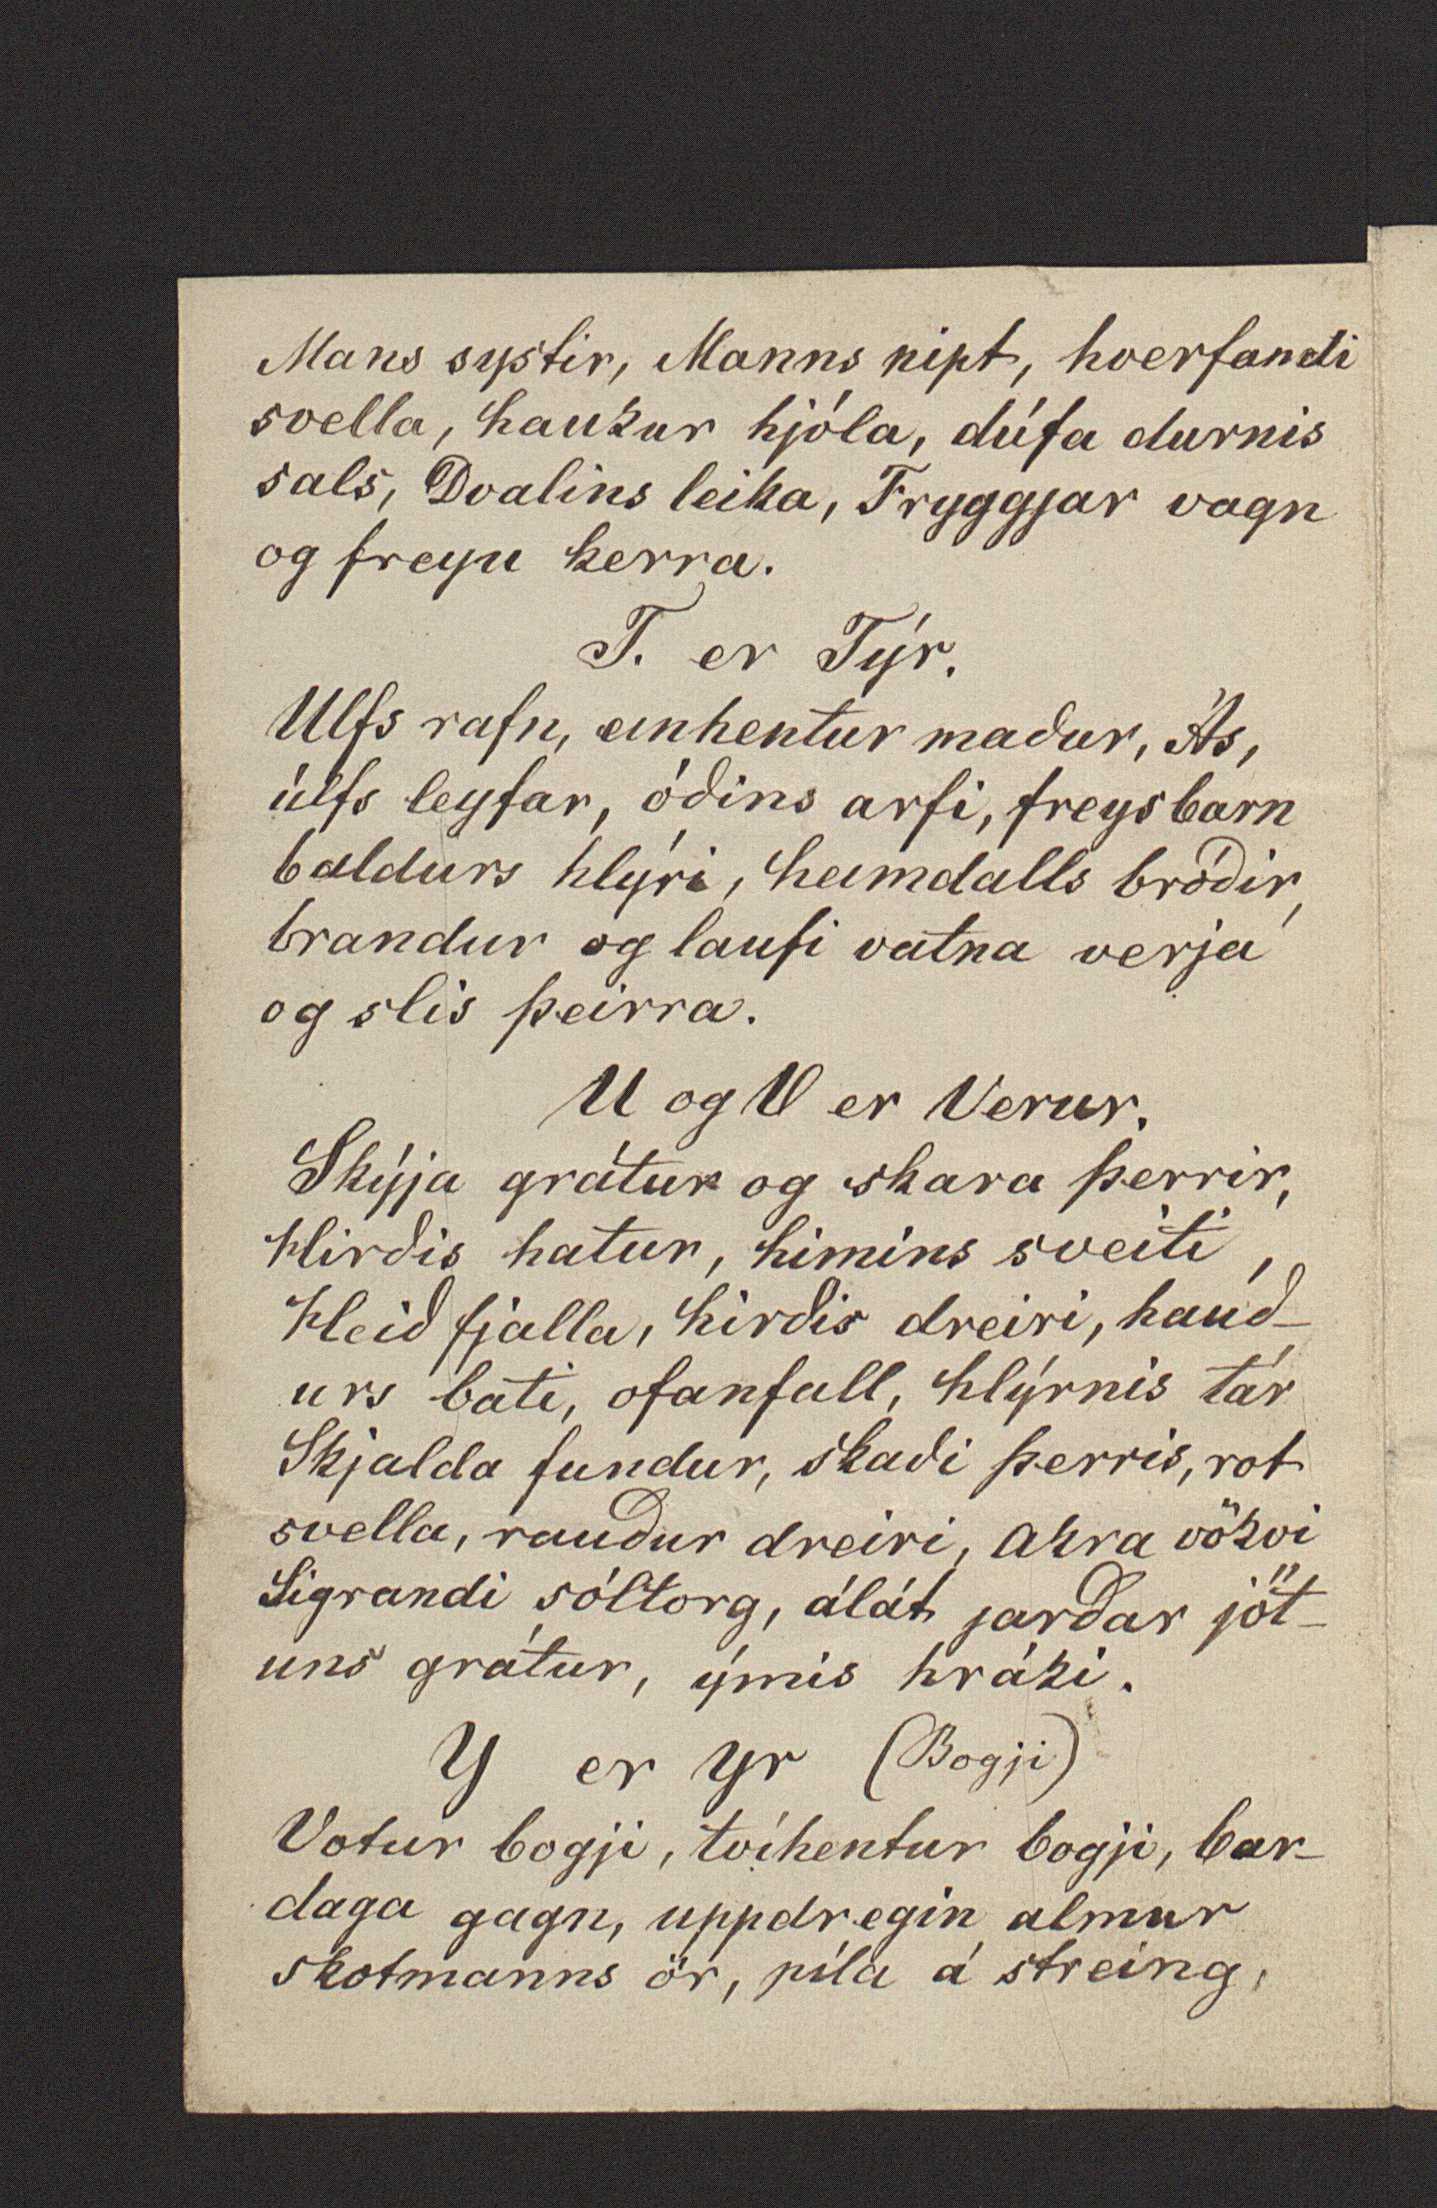 Mans systir, Manns nipt, hverfandi
svella, haukur hjóla, dúfa durnis
sals, Dvalins leika, Fryggjar vagn
og freyu kerra.
T. er Týr.
Ulfs rafn, einhentur maður, Ás,
úlfs leyfar, óðins arfi, freys barn
baldurs hlýri, heimdalls bróðir,
brandur og laufi vatna verja
og slis þeirra.
U og V er Verur.
Skýja grátur og skara þerrir,
Hirðis hatur, himins sveiti,
Heið fjalla, hirðis dreiri, hauð-
urs bati, ofanfall, hlýrnis tár
Skjalda fundur, skaði þerris, rot
svella, rauður dreiri, akra vökvi
Sigrandi sóltorg, álát jarðar jöt-
uns grátur, ýmis hráki.
Y er yr (Bogji)
Votur bogji, tvíhentur bogji, bar-
daga gagn, uppdregin almur
skotmanns ör, píla á streing,